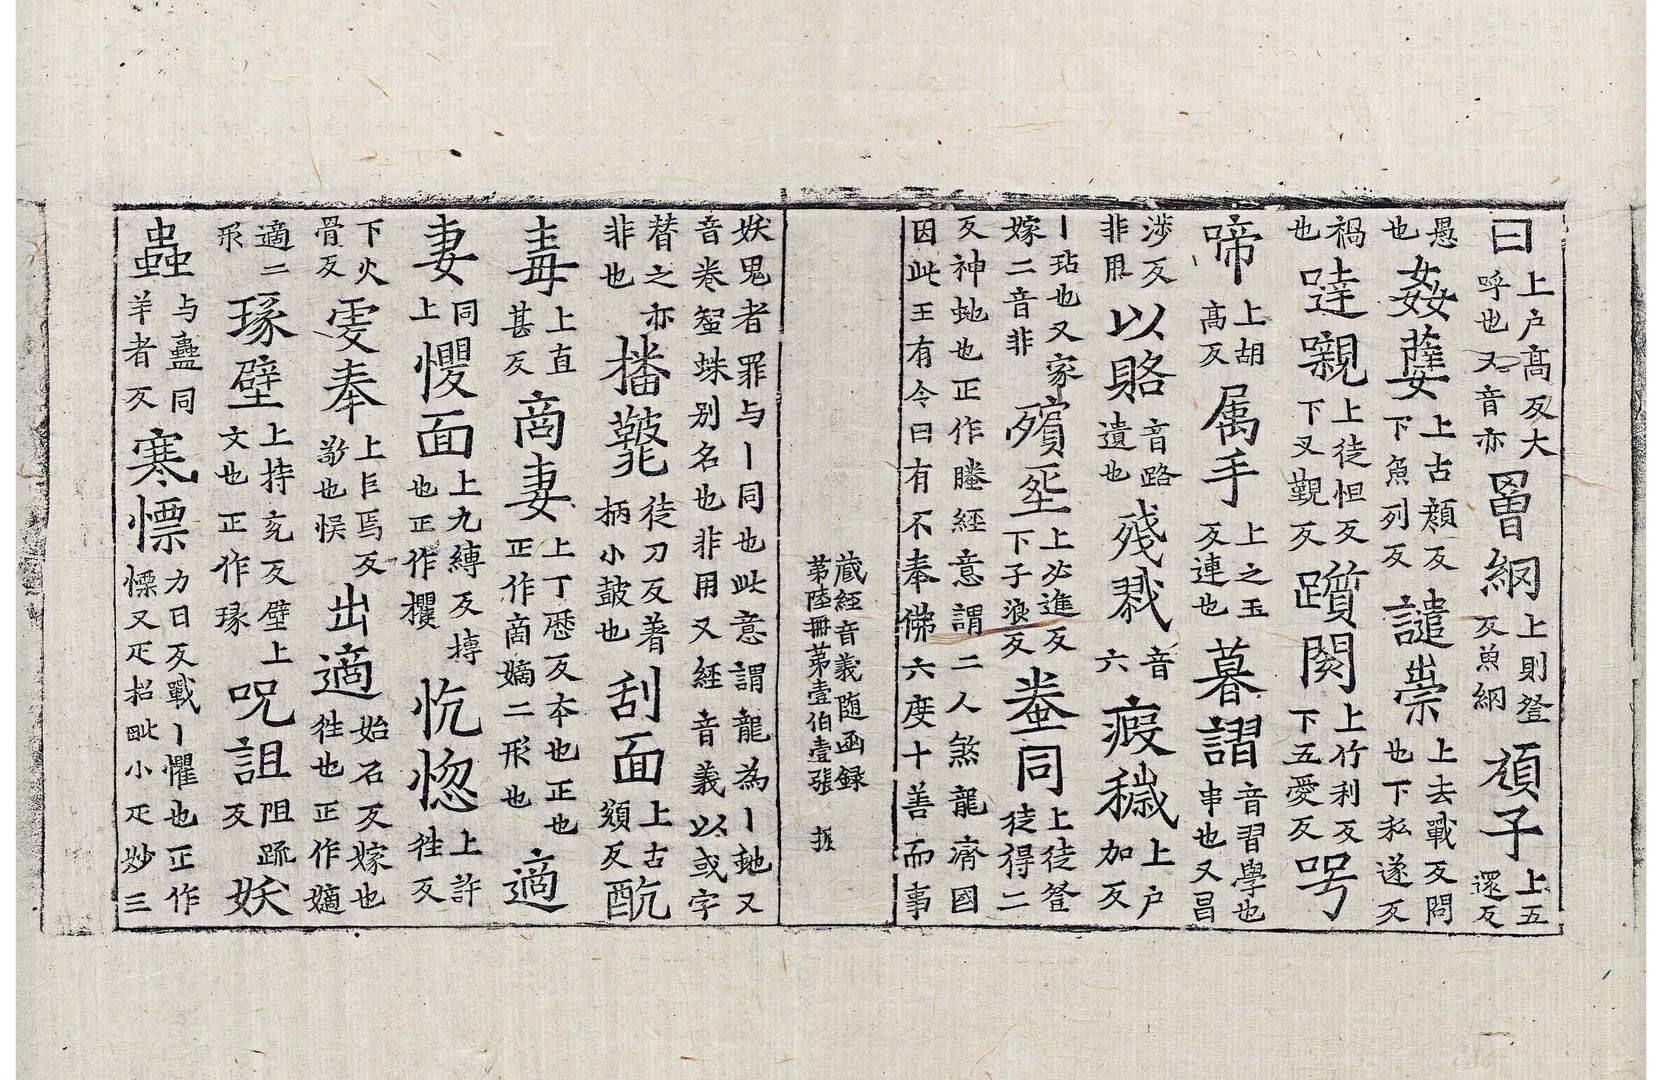 曰上戶髙反大呼也又音亦罾網上則登反魚網頑子上五還反
愚也姦㜸上古顔反下魚列反譴祟上去戰反問也下私遂反
禍也噠嚫上徒怛反下叉覲反躓閡上竹利反下五愛反号
啼上胡髙反属手上之玉反連也暮謵音習學也串也又昌
涉反非用以賂音路遺也殘戮音六瘕穢上戶加反
丨玷也又家嫁二音非殯埊上必進反下子浪反同上徒登徒得二
反神虵也正作螣經意謂二人煞龍濟國因此王有令曰有不奉佛六度十善而事
藏經音義随函録
苐陸冊苐壹伯壹張 振
妖鬼者罪与丨同也此意謂龍為丨虵又音卷蛛别名也非用又經音義以或字
替之亦非也播鼗徒刀反著柄小鼓也刮面上古頒反酖
毒上直甚反啇妻上丁歴反夲也正也正作啇嫡二形也適
妻同上戄面上九縛反摶也正作攫怳惚上許往反
下火骨反奉焉反也悮出適始石反嫁也往也正作嫡
適二形瑑壁上持兖反壁上文也正作瑑呪詛阻䟽反妖
蟲与蠱同羊者反寒慓力日反戰丨懼也正作慄又疋招毗小疋妙三